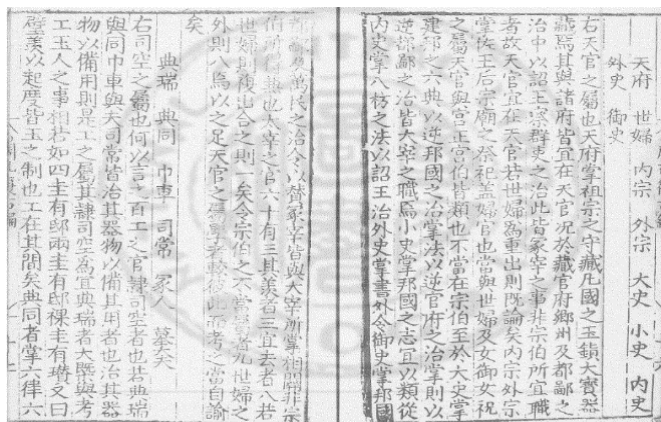 天府 世婦 内宗 外宗 大史 小史 内史
外史 御史
右天官之屬也天府掌祖宗之守藏凡國之玉鎮大寶器
藏焉其與諸府皆宜在天官况於藏官府鄉州及都鄙之
治中以詔王察群吏之治此皆冢宰之事非宗伯所宜職
者故天官宜在天官若世婦為重出則既論矣内宗外宗
掌佐王后宗廟之祭祀蓋婦官也當與世婦及女御女祝
之屬天官與宫正宫伯皆類也不當在宗伯至於大史掌
建邦之六典以逆邦國之治掌法以逆官府之治掌則以
逆都鄙之治皆大宰之職焉小史掌邦國之志宜以類從
内史掌八枋之法以詔王治外史掌書外令御史掌邦國
都鄙及萬民之治令以贊冢宰皆與大宰所掌相關非宗
伯所得與也大宰之官六十有三其羡者三宜去者八若
世婦則復出合之則一矣令宗伯之不當者九世婦之
外則八焉以之足天官之屬
矣
典瑞 典同 巾車 司常 冢人 墓矣
右司空之屬也何以言之百工之官隷司空者也若典瑞
與同巾車與大司常皆治其器物以備其用者也治其器
物以備用則是工之屬其隷司空焉宜典瑞者大槩與考
工玉人之事相若如四圭有邸兩圭有邸祼圭有瓚又曰
璧羡以起度皆玉之制也工在其間矣典同者掌六律六